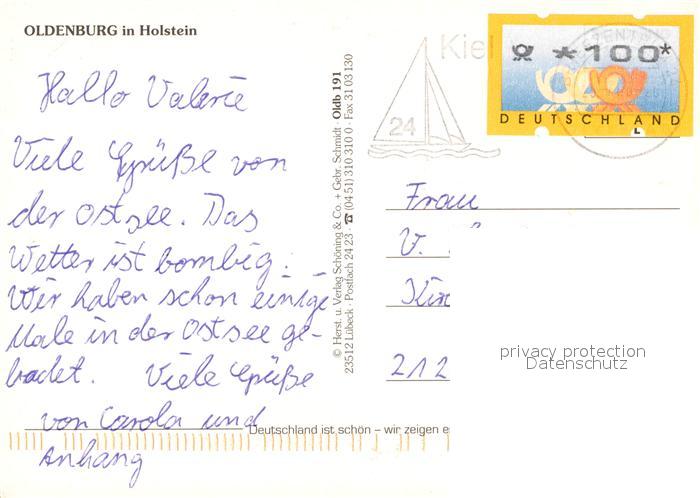 OLDENBURG in Holstein
Hallo Valerie
Viele Grüße von
der Ostsee. Das
Wetter ist bombig.
Wir haben schon einige
Male in der Ostsee ge-
badet. Viele Grüße
von Carola und
Anhang
© Herst. u. Verlag Schöning & Co. + Gebr. Schmidt · Oldb 191
23512 Lübeck · Postfach 24 23 · ☎ (04 51) 310 310 0 · Fax 31 03 130
Deutschland ist schön – wir zeigen e
Kie
24
*100*
DEUTSCHLAND
L
Frau
V.
212
privacy protection
Datenschutz